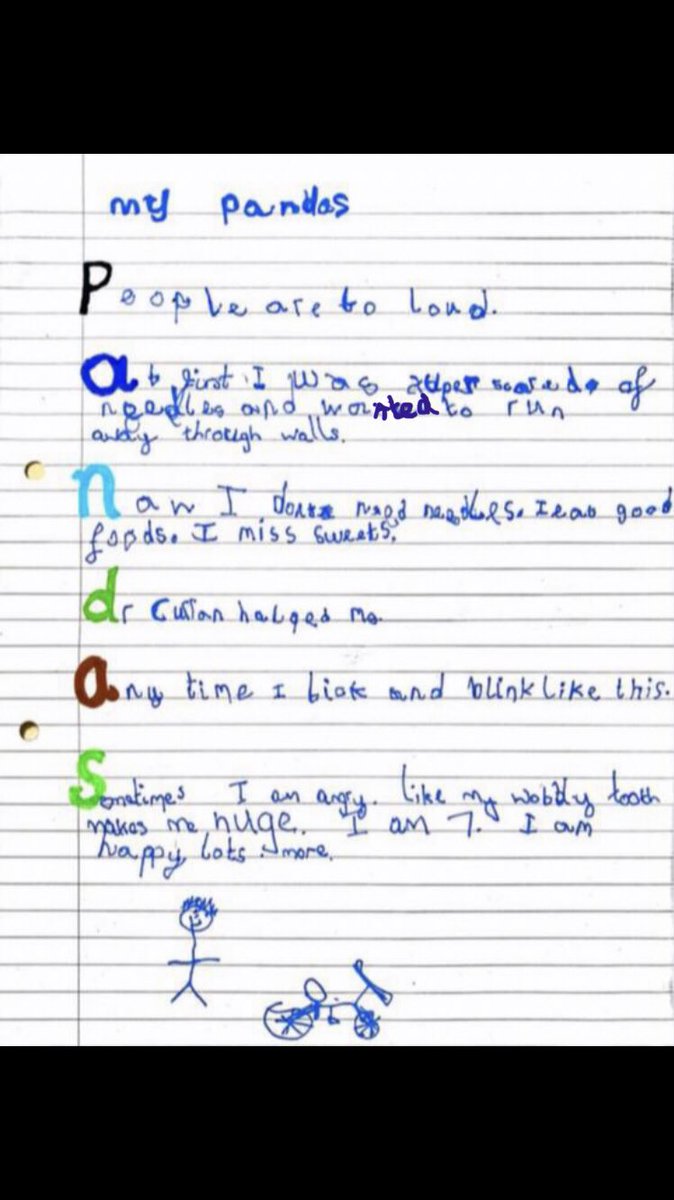 my pandas
People are to loud.
at first I was super scared of
needles and wanted to run
away through walls.
Naw I dont need needles. I eat good
foods. I miss sweets.
dr Curran helped me
any time I tick and blink like this.
Sometimes I am angry. Like my wobbly tooth
makes me huge. I am 7. I am
happy lots more.